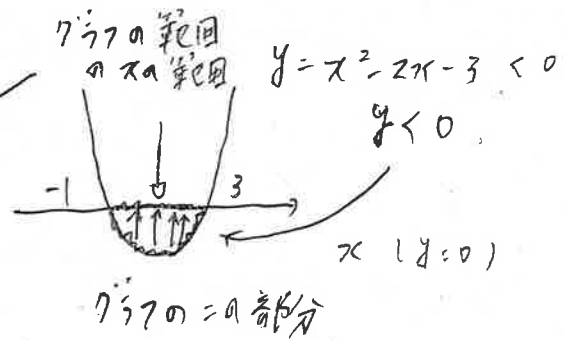 グラフの範囲
のxの範囲
y = x² - 2x - 3 < 0
y < 0
-1
3
x (y=0)
グラフのこの部分